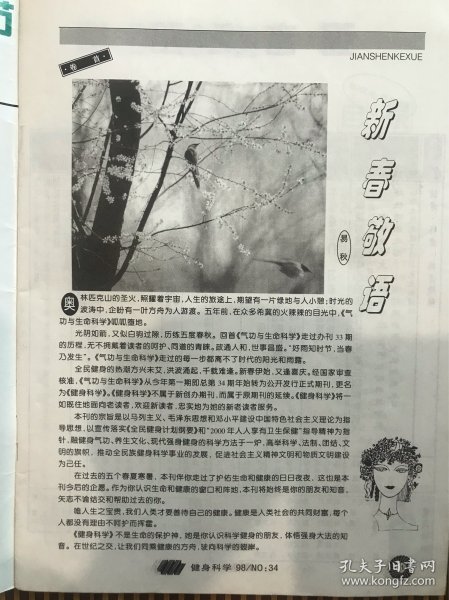 JIANSHENKEXUE
卷首
新春敬语
易秋
奥林匹克山的圣火,照耀着宇宙,人生的旅途上,期望有一片绿地与人小憩;时光的
波涛中,企盼有一叶方舟为人游渡。五年前,在众多希冀的火辣辣的目光中,《气
功与生命科学》呱呱落地。
光阴如箭,又似白驹过隙,历练五度春秋。回首《气功与生命科学》走过办刊33期
的历程,无不佩戴着读者的呵护、同道的青睐。故遇人和,世事昌盛。“好雨知时节,当春
乃发生”。《气功与生命科学》走过的每一步都离不了时代的阳光和雨露。
全民健身的热潮方兴未艾,洪波涌起,千载难逢。新春伊始,又逢喜庆。经国家审查
核准,《气功与生命科学》从今年第一期即总第34期年始转为公开发行正式期刊,更名
为《健身科学》。《健身科学》不属于新创办期刊,而属于原期刊的延续。《健身科学》将一
如既往地面向老读者,欢迎新读者,忠实地为她的新老读者服务。
本刊的宗旨是以马列主义、毛泽东思想和邓小平建设中国特色社会主义理论为指
导思想,以宣传落实《全民健身计划纲要》和“2000年人人享有卫生保健”指导精神为指
针,融健身气功、养生文化、现代强身健身的科学方法于一炉,高举科学、法制、团结、文
明的旗帜,推动全民族健身科学事业的发展,促进社会主义精神文明和物质文明建设
为己任。
在过去的五个春夏寒暑,本刊伴你走过了护佑生命和健康的日日夜夜,这也是本
刊今后的企愿。作为你认识生命和健康的窗口和阵地,本刊将始终是你的朋友和知音,
矢志不渝结交和帮助过去的你。
唯人生之宝贵,我们人类才要善待自己的健康。健康是人类社会的共同财富,每个
人都没有理由不呵护而挥霍。
《健身科学》不是生命的保护神,她是你认识科学健身的朋友,体悟强身大法的知
音。在世纪之交,让我们同乘健康的方舟,驶向科学的彼岸。
健身科学 98/NO:34
孔夫子旧书网
www.kongfz.com